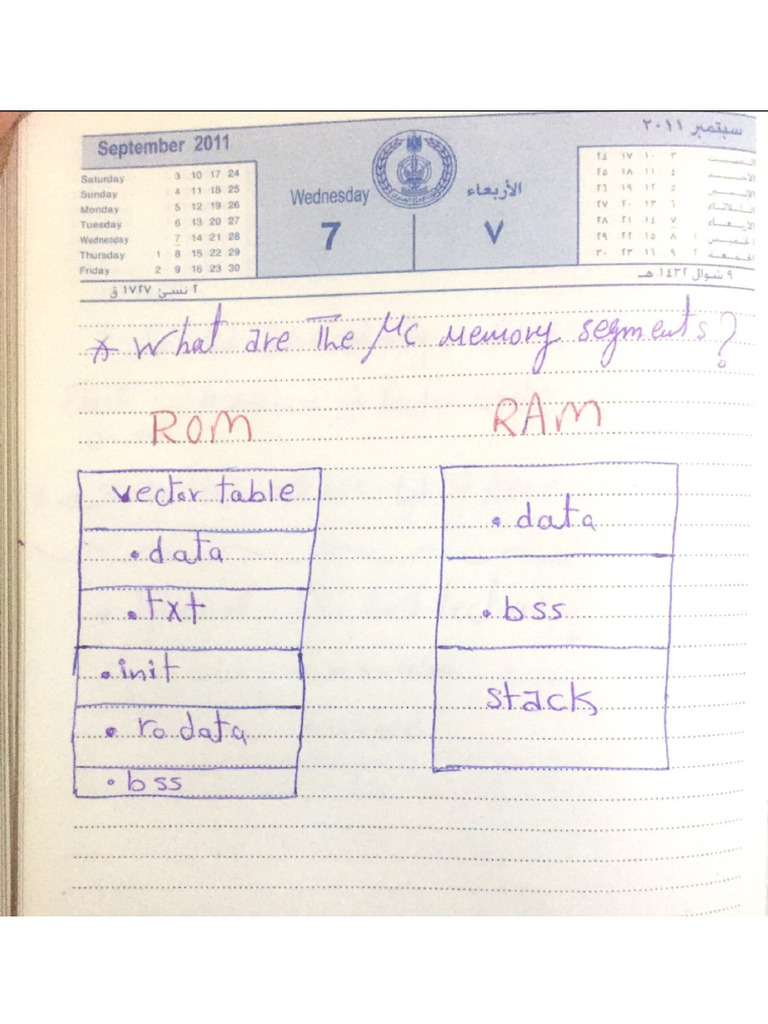 September 2011
Saturday 3 10 17 24
Sunday 4 11 18 25
Monday 5 12 19 26
Tuesday 6 13 20 27
Wednesday 7 14 21 28
Thursday 1 8 15 22 29
Friday 2 9 16 23 30
Wednesday
7
الأربعاء
٧
سبتمبر ٢٠١١
٣ ١٠ ١٧ ٢٤
٤ ١١ ١٨ ٢٥
٥ ١٢ ١٩ ٢٦
٦ ١٣ ٢٠ ٢٧
٧ ١٤ ٢١ ٢٨
١ ٨ ١٥ ٢٢ ٢٩
٢ ٩ ١٦ ٢٣ ٣٠
٩ شوال ١٤٣٢ هـ
٢ نسئ ١٧٢٧ ق
* What are The μc memory segments?
ROM
vector table
.data
.txt
.init
.ro data
.bss
RAM
.data
.bss
stack